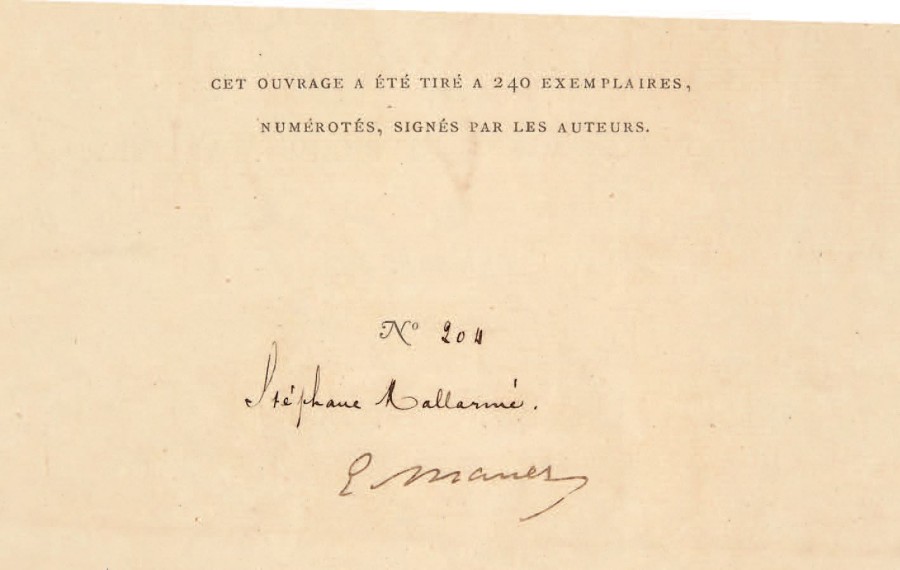 CET OUVRAGE A ÉTÉ TIRÉ A 240 EXEMPLAIRES,
NUMÉROTÉS, SIGNÉS PAR LES AUTEURS.
Nº 204
Stéphane Mallarmé.
E Manet